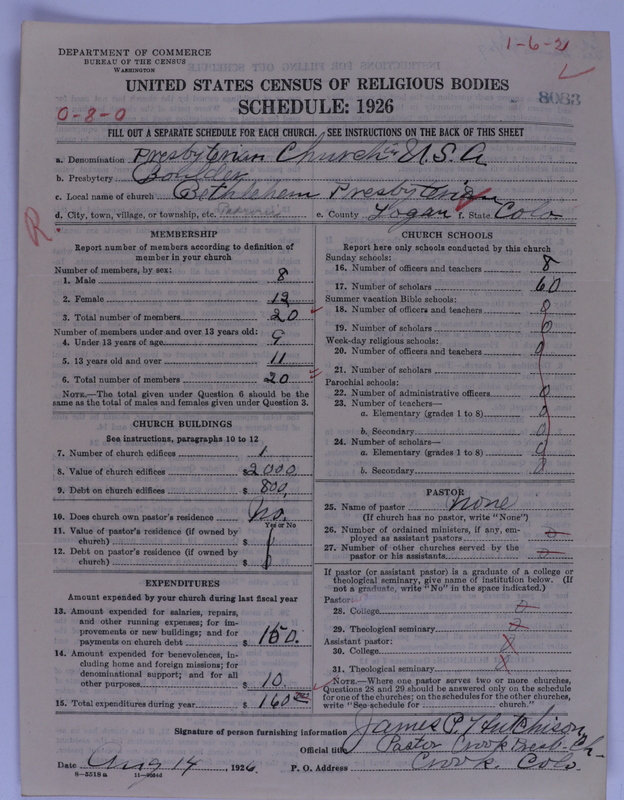 DEPARTMENT OF COMMERCE
BUREAU OF THE CENSUS
WASHINGTON
1-6-21
UNITED STATES CENSUS OF RELIGIOUS BODIES
SCHEDULE: 1926
8083
0-8-0
FILL OUT A SEPARATE SCHEDULE FOR EACH CHURCH. SEE INSTRUCTIONS ON THE BACK OF THIS SHEET
a. Denomination Presbyterian Church in U.S.A
b. Presbytery Boulder
c. Local name of church Bethlehem Presbyterian
d. City, town, village, or township, etc. e. County Logan f. State Colo.
R
MEMBERSHIP
Report number of members according to definition of member in your church
Number of members, by sex:
1. Male 8
2. Female 12
3. Total number of members 20
Number of members under and over 13 years old:
4. Under 13 years of age 9
5. 13 years old and over 11
6. Total number of members 20
NOTE.—The total given under Question 6 should be the same as the total of males and females given under Question 3.
CHURCH BUILDINGS
See instructions, paragraphs 10 to 12
7. Number of church edifices 1
8. Value of church edifices $2000
9. Debt on church edifices $ 800.
10. Does church own pastor's residence No.
Yes or No
11. Value of pastor's residence (if owned by church) $
12. Debt on pastor's residence (if owned by church) $
EXPENDITURES
Amount expended by your church during last fiscal year
13. Amount expended for salaries, repairs, and other running expenses; for improvements or new buildings; and for payments on church debt $ 150.
14. Amount expended for benevolences, including home and foreign missions; for denominational support; and for all other purposes $ 10.
15. Total expenditures during year $ 160
CHURCH SCHOOLS
Report here only schools conducted by this church
Sunday schools:
16. Number of officers and teachers 8
17. Number of scholars 60
Summer vacation Bible schools:
18. Number of officers and teachers 0
19. Number of scholars 0
Week-day religious schools:
20. Number of officers and teachers 0
21. Number of scholars
Parochial schools:
22. Number of administrative officers 0
23. Number of teachers—
a. Elementary (grades 1 to 8) 0
b. Secondary 0
24. Number of scholars—
a. Elementary (grades 1 to 8) 0
b. Secondary 0
PASTOR
25. Name of pastor none
(If church has no pastor, write "None")
26. Number of ordained ministers, if any, employed as assistant pastors 0
27. Number of other churches served by the pastor or his assistants 0
If pastor (or assistant pastor) is a graduate of a college or theological seminary, give name of institution below. (If not a graduate, write "No" in the space indicated.)
Pastor:
28. College
29. Theological seminary
Assistant pastor:
30. College
31. Theological seminary
NOTE.—Where one pastor serves two or more churches, Questions 28 and 29 should be answered only on the schedule for one of the churches; on the schedules for the other churches, write "See schedule for church."
Signature of person furnishing information James P. Hutchison
Official title Pastor Crook Presb. Ch.
Date Aug 14, 1926 P. O. Address Crook, Colo.
8—5518 a